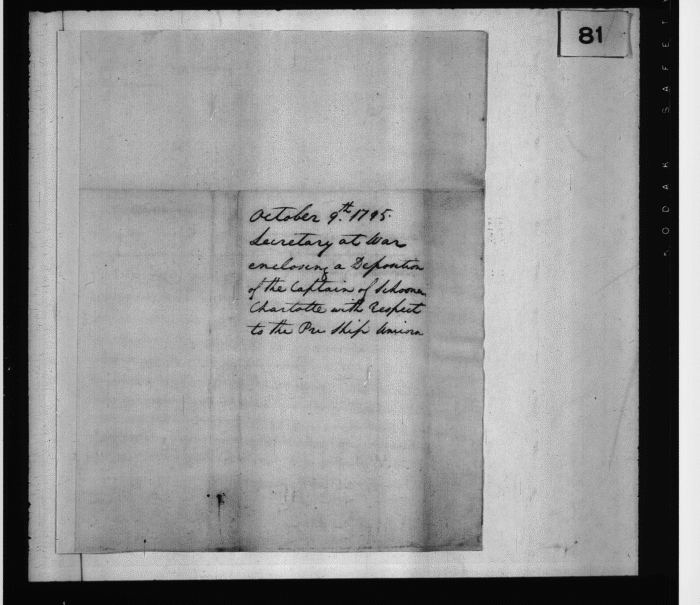 81
October 9th. 1795.
Secretary at War
enclosing a Deposition
of the Captain of Schooner
Charlotte with respect
to the Pre Ship Unicorn
KODAK SAFET